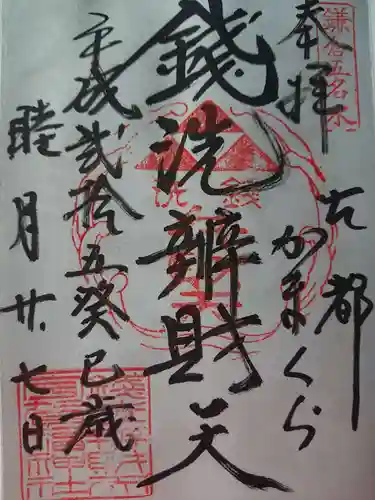 鎌倉五名水
奉拝
古都
かまくら
銭洗辨財天
平成弐拾五癸巳歳
睦月廿七日